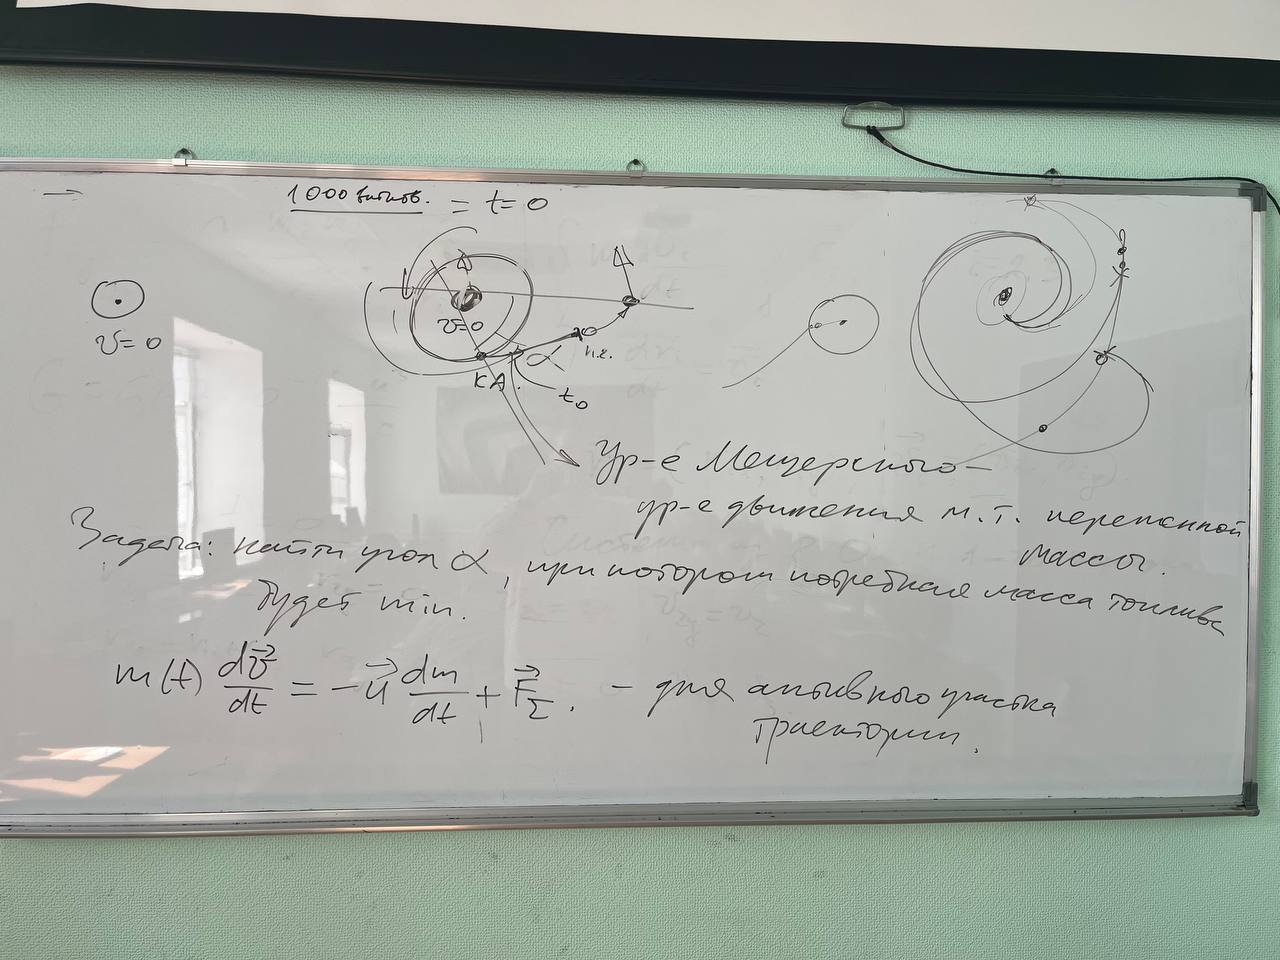 1000 витков. = t=0
v=0
v=0
α
КА.
t₀
Ур-е Мещерского –
ур-е движения м.т. переменной
массы.
Задача: найти угол α, при котором потребная масса топлива
будет min.
m(t) dv⃗/dt = -u⃗ dm/dt + F⃗_Σ. – для активного участка
траектории.